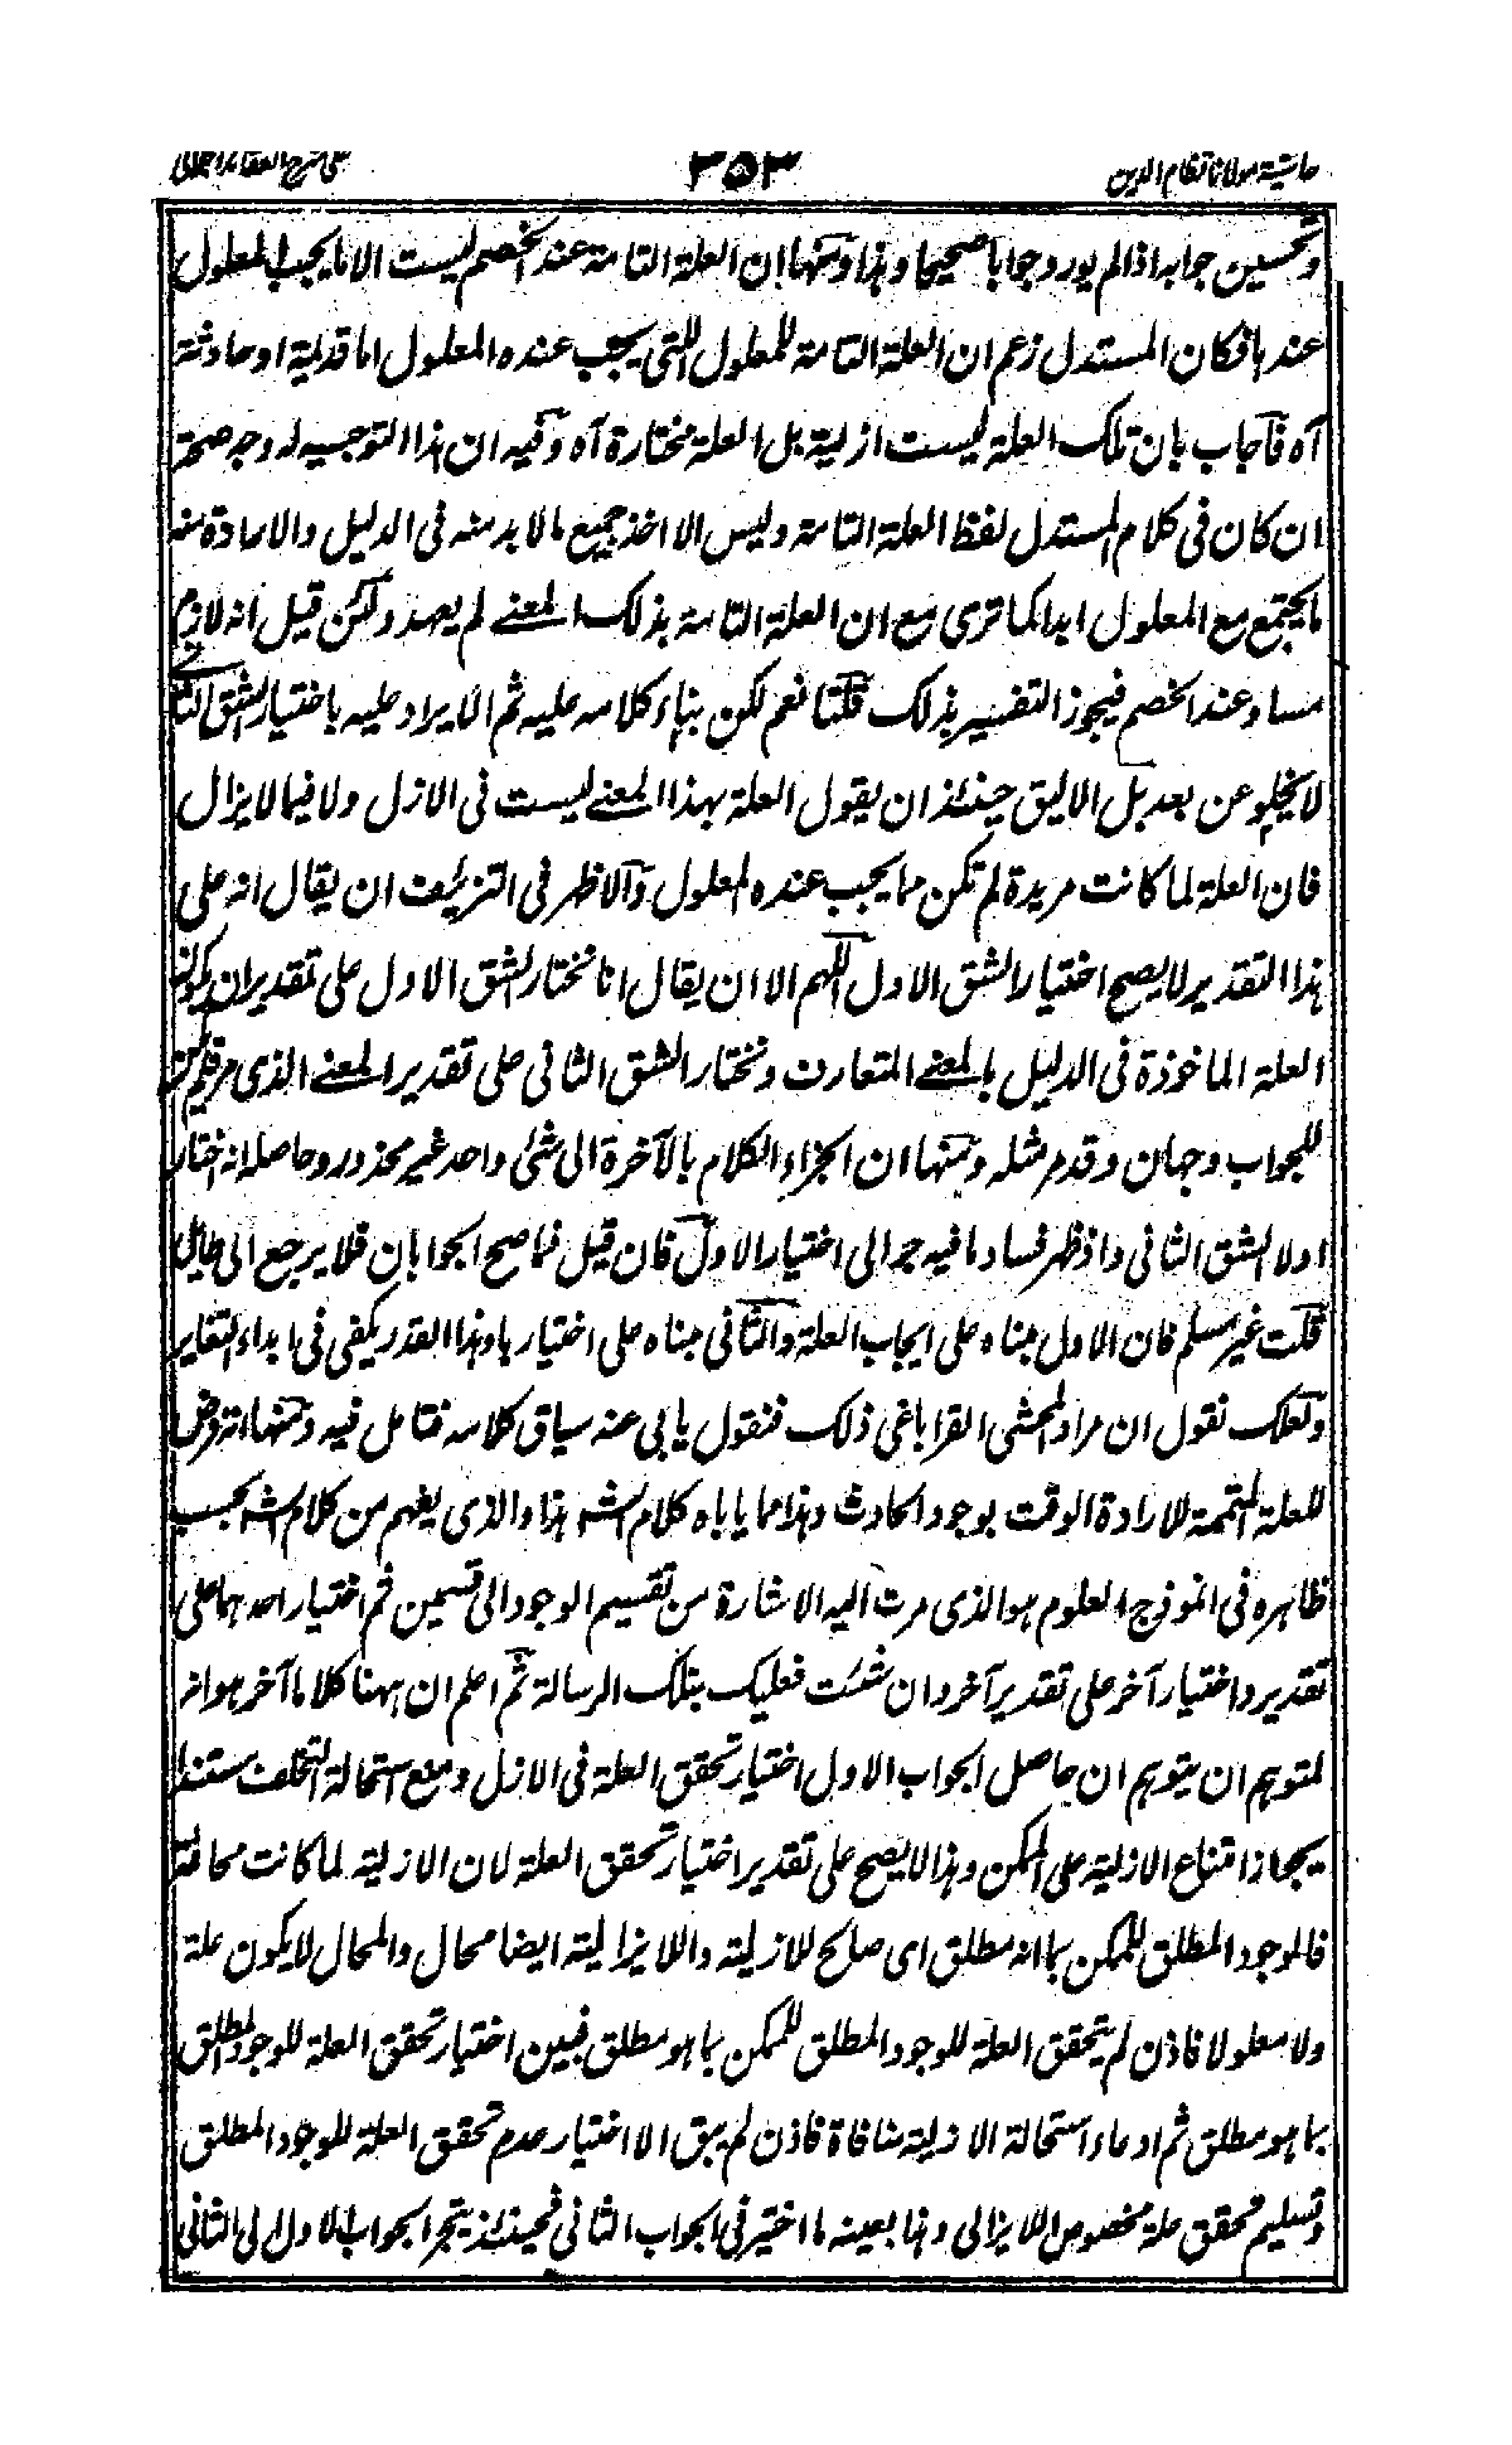 حاشية مولانا نظام الدين ٣٥٣ على شرح العقائد الجلالى
وتحسين جوابه اذا لم يورد جوابا صحيحا وهذا ومنها ان العلة التامة عند الخصم ليست الا ما يجب المعلول
عندها فكان المستدل زعم ان العلة التامة للمعلول التى يجب عنده المعلول اما قديمة او حادثة
آه فاجاب بان تلك العلة ليست ازلية بل العلة مختارة آه وفيه ان هذا التوجيه له وجه صحة
ان كان فى كلام المستدل لفظ العلة التامة وليس الا اخذ جميع ما لا بد منه فى الدليل والارادة منه
ما يجتمع مع المعلول ابدا كما ترى مع ان العلة التامة بذلك المعنے لم يعهد ولئن قيل انه لازم
مساو عند الخصم فيجوز التفسير بذلك قلنا نعم لكن بناء كلامه عليه ثم الايراد عليه باختيار الشق الثانے
لا يخلو عن بعد بل الاليق حينئذ ان يقول العلة بهذا المعنے ليست فى الازل ولا فيما لا يزال
فان العلة لما كانت مريدة لم تكن مما يجب عنده المعلول والاظهر فى التزئيف ان يقال انه على
هذا التقدير لا يصح اختيار الشق الاول اللهم الا ان يقال انا نختار الشق الاول على تقدير ان يكون
العلة الماخوذة فى الدليل بالمعنے المتعارف ونختار الشق الثانى على تقدير المعنے الذى مر
للجواب وجهان وقد مر مثله ومنها ان انجزاء الكلام بالآخرة الى شئ واحد غير محذور وحاصله انه اختار
اولا الشق الثانى واذ ظهر فساد ما فيه جر الى اختيار الاول فان قيل فما صح الجوابان فلا يرجع الى طائل
قلت غير مسلم فان الاول مبناه على ايجاب العلة والثانى مبناه على اختيارها وهذا القدر يكفى فى ابداء التغاير
ولعلك تقول ان مراد المحشى القراباغى ذلك فنقول يابى عنه سياق كلامه فتامل فيه ومنها انه فرض
للعلة المتممة للارادة الوقت بوجود الحادث وهذا مما ياباه كلام الشه هذا والذى يفهم من كلام الشه بحسب
ظاهره فى انموذج العلوم هو الذى مرت اليه الاشارة من تقسيم الوجود الى قسمين ثم اختيار احدهما على
تقدير واختيار آخر على تقدير آخر وان شئت فعليك بتلك الرسالة ثم اعلم ان ههنا كلاما آخر هو انه
لمتوهم ان يتوهم ان حاصل الجواب الاول اختيار تحقق العلة فى الازل ومنع استحالة التخلف مستندا
بجواز امتناع الازلية على الممكن وهذا لا يصح على تقدير اختيار تحقق العلة لان الازلية لما كانت محالة
فالوجود المطلق للممكن بما انه مطلق اى صالح للازلية واللايزالية ايضا محال والمحال لا يكون علة
ولا معلولا فاذن لم يتحقق العلة للوجود المطلق للممكن بما هو مطلق فبين اختيار تحقق العلة للوجود المطلق
بما هو مطلق ثم ادعاء استحالة الازلية منافاة فاذن لم يبق الا اختيار عدم تحقق العلة للوجود المطلق
وتسليم تحقق علة مخصوص اللايزالى وهذا بعينه ما اختير فى الجواب الثانى فحينئذ ينجر الجواب الاول الى الثانى